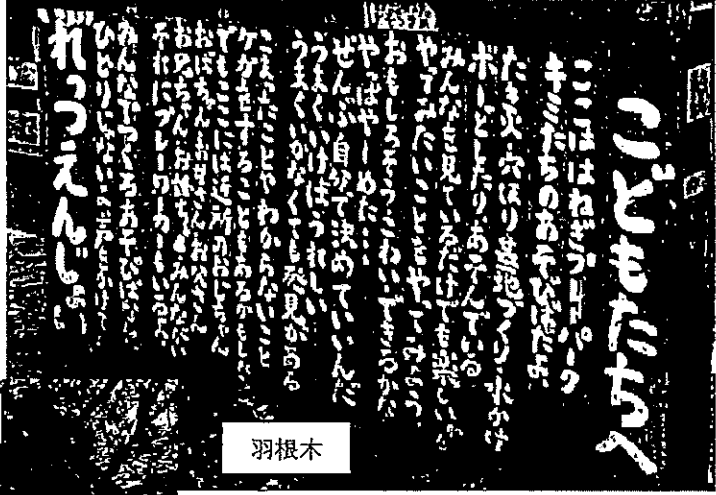 こどもたちへ
ここははねぎプレーパーク
キミたちのあそびばだよ
たき火・穴ほり・基地づくり・水かけ
ボーとしたりあそんでいる
みんなを見ているだけでも楽しいね
やってみたいことをやってみよう
おもしろそうこわいできるかな
やっぱやーめた
ぜんぶ自分で決めていいんだ
うまくいけばうれしい
うまくいかなくても発見がある
こまったことやわからないこと
ケガをすることもあるかもしれない
でもここには近所のおじちゃん
おばちゃんお母さんお父さん
お兄ちゃんお姉ちゃんみんながいる
それにプレーワーカーもいるよ
みんなでつくるあそびば
ひとりじゃない 声をかけて
れっつえんじょい
羽根木